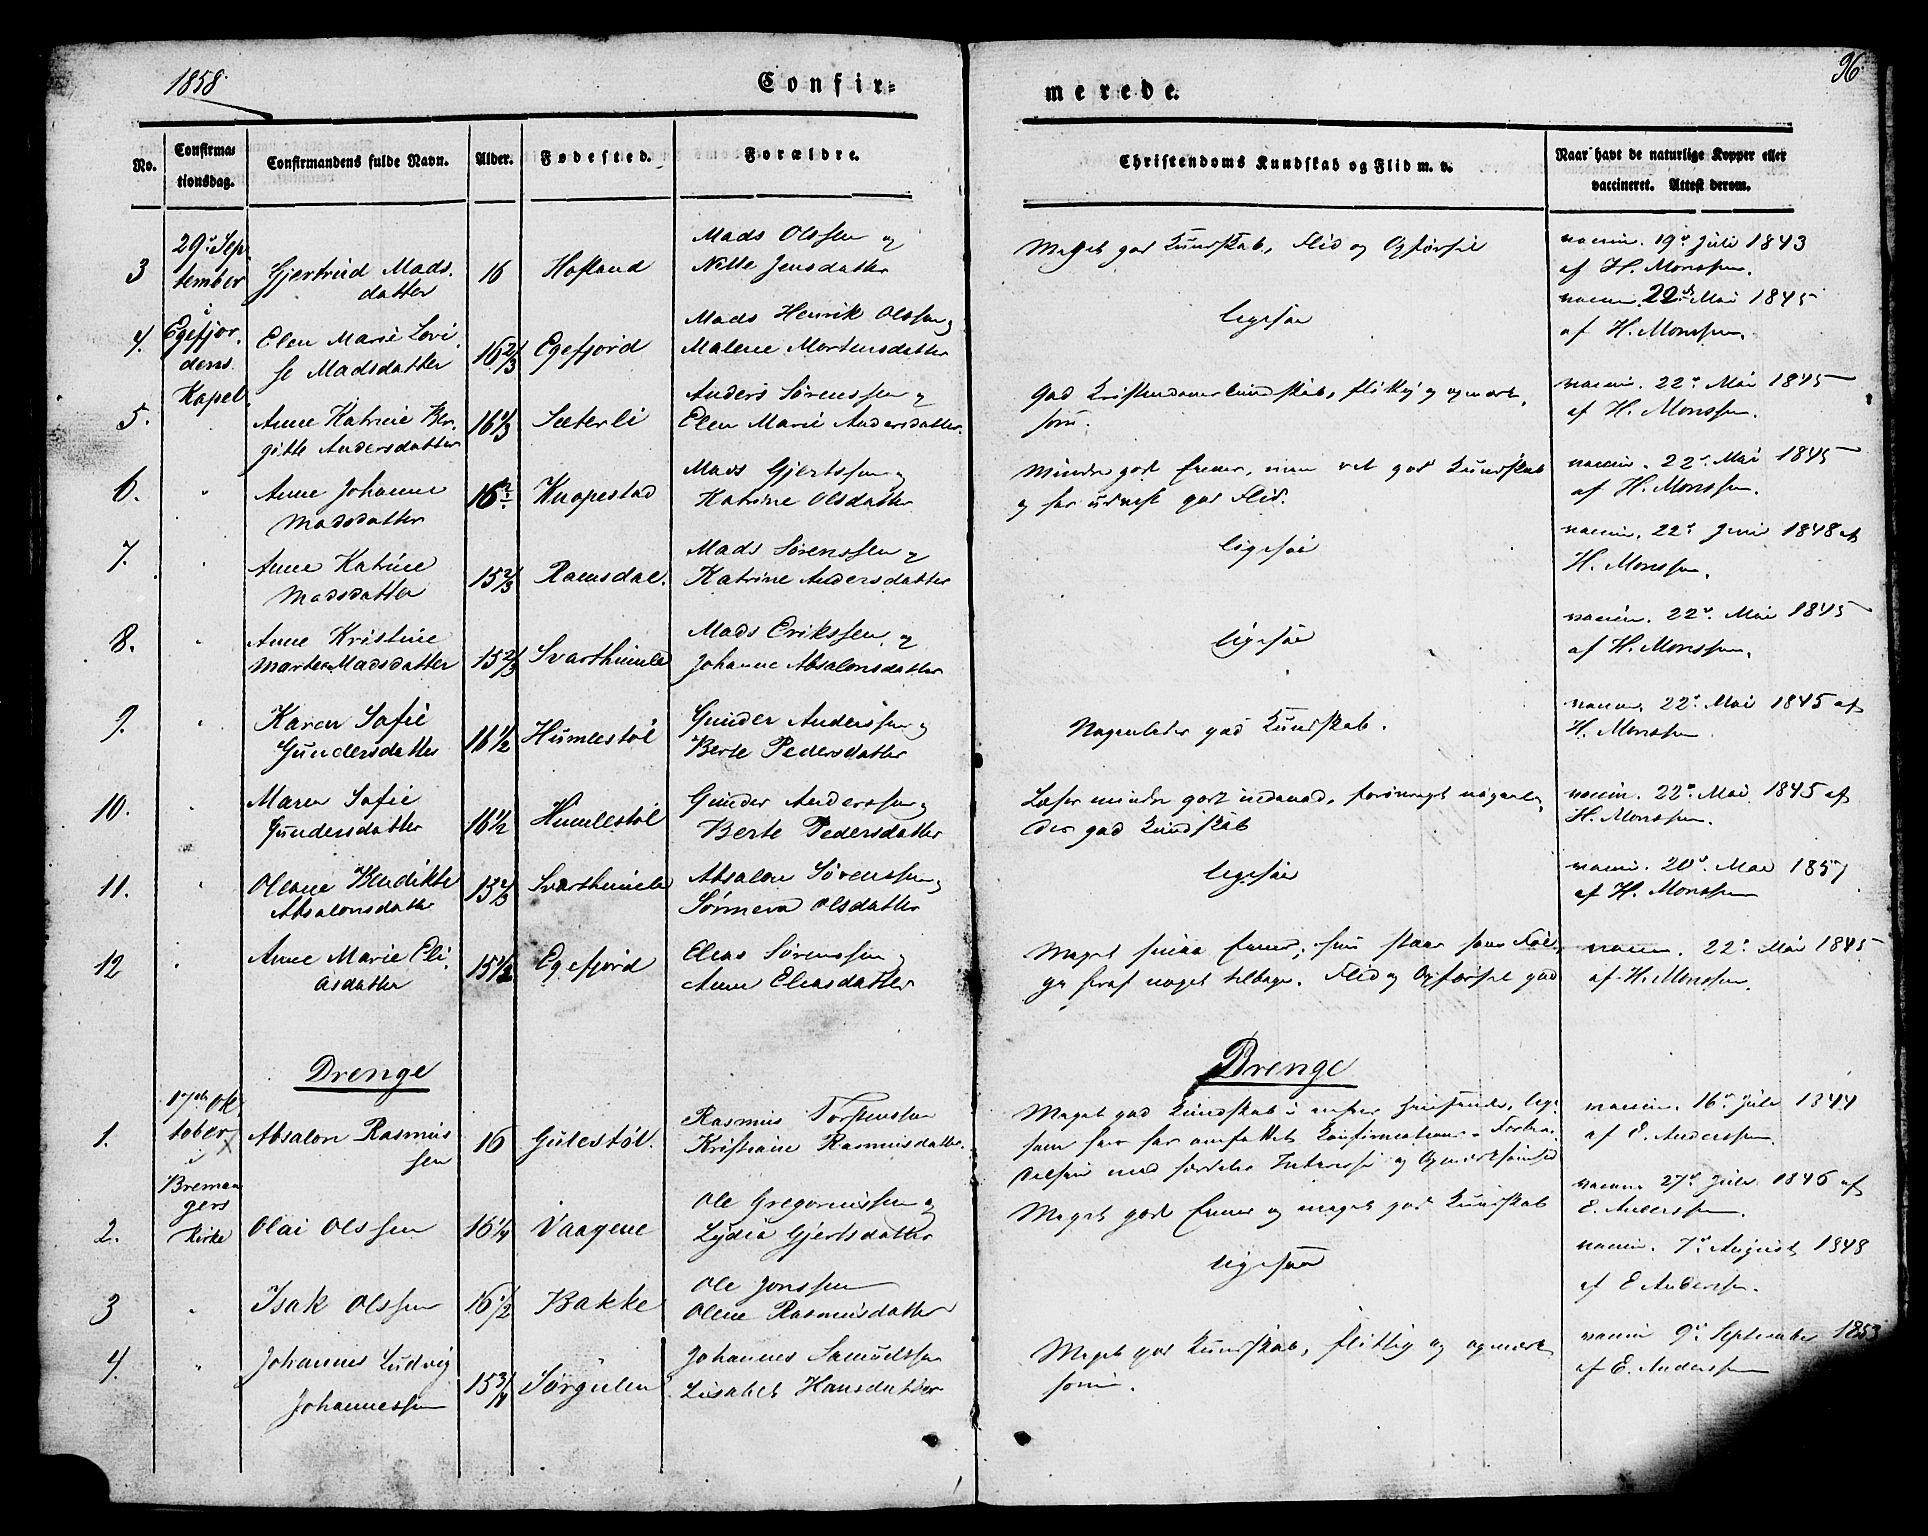 1858.
Confir=
merede.
96.
No.
Confirma=
tionsdag.
Confirmandens fulde Navn.
Alder.
Fødested.
Forældre.
Christendoms Kundskab og Flid m. v.
Naar havt de naturlige Kopper eller
vaccineret. Attest derom.
29de Sep
tember
i
Egefjor
dens
Kapel
3
Gjertrud Mads
datter
16
Hofland
Mads Olssen og
Nille Jensdatter
Meget god Kundskab, Flid og Opførsel
vaccin. 19de Juli 1843
af H. Monssen.
4.
Elen Marie Lovi
se Madsdatter
16 2/3
Egefjord
Mads Henrik Olssen og
Malene Mortensdatter
ligesaa
vaccin. 22de Mai 1845
af H. Monssen.
5.
Anne Katrine Ber
gitte Andersdatter
16 1/3
Sæterli
Anders Sørenssen og
Elen Marie Andersdatter.
God Kristendomskundskab, flittig og opmærk
som.
vaccin. 22de Mai 1845
af H. Monssen.
6.
Anne Johanne
Madsdatter
Knapestad
Mads Gjertssen og
Katrine Olsdatter
Mindre gode Evner, men ret god Kundskab
og har udvist god Flid.
vaccin. 22de Mai 1845
af H. Monssen.
7.
Anne Katrine
Madsdatter
15 2/3
Ramsdal.
Mads Sørenssen og
Katrine Andersdatter
ligesaa
vaccin. 22de Juni 1848 af
H. Monssen.
8.
Anne Kristine
Marte Madsdatter
15 2/3
Svarthumle
Mads Erikssen og
Johanne Absalonsdatter
ligesaa
vaccin. 22de Mai 1845
af H. Monssen.
9.
Karen Sofie
Gundersdatter
16 1/2
Humlestøl
Gunder Anderssen og
Berte Pedersdatter
Nogenledes god Kundskab.
vaccin. 22de Mai 1845 af
H. Monssen
10.
Maren Sofie
Gundersdatter
16 1/2
Humlestøl
Gunder Anderssen og
Berte Pedersdatter
Læser mindre godt indenad, forøvrigt nogenle
des god Kundskab
vaccin. 22de Mai 1845 af
H. Monssen.
11.
Oleane Bendikte
Absalonsdatter
15 2/3
Svarthumle
Absalon Sørenssen og
Sørineva Olsdatter
ligesaa
vaccin. 20de Mai 1857
af H. Monssen
12
Anne Marie Eli
asdatter
15 1/2
Egefjord
Elias Sørenssen og
Anne Eliasdatter
Meget smaa Evner; hun staar som Føl
ge heraf noget tilbage. Flid og Opførsel god
vaccin. 22de Mai 1845
af H. Monssen.
Drenge
Drenge
17de Ok
tober
i
Breman
gers
Kirke
1.
Absalon Rasmus
sen
16
Gulestøl.
Rasmus Torstenssen
Kristiane Rasmusdatter.
Meget god Kundskab i enhver Henseende, lige
som han har omfattet Konfirmations-Forbere
delsen med særdeles Interesse og Opmærksomhed
vaccin. 16de Juli 1844
af E. Anderssen.
2.
Olai Olssen
16 1/4
Vaagene
Ole Gregoriussen og
Lydia Gjertsdatter
Meget gode Evner og meget god Kundskab
vaccin. 27de Juli 1846 af
E. Anderssen.
3
Isak Olssen
16 1/2
Bakke
Ole Jonssen
Olene Rasmusdatter
ligesaa
vaccin. 7de August 1848
af E Anderssen.
4.
Johannes Ludvig
Johannessen
15 3/4
Sørgulen
Johannes Samuelssen
Lisabet Hansdatter
Meget god Kundskab, flittig og opmærk
som.
vaccin 9de September 1853
af E. Anderssen